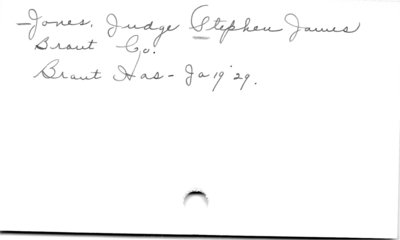 Jones, Judge Stephen James
Brant Co.
Brant Has - Ja 19 '29.